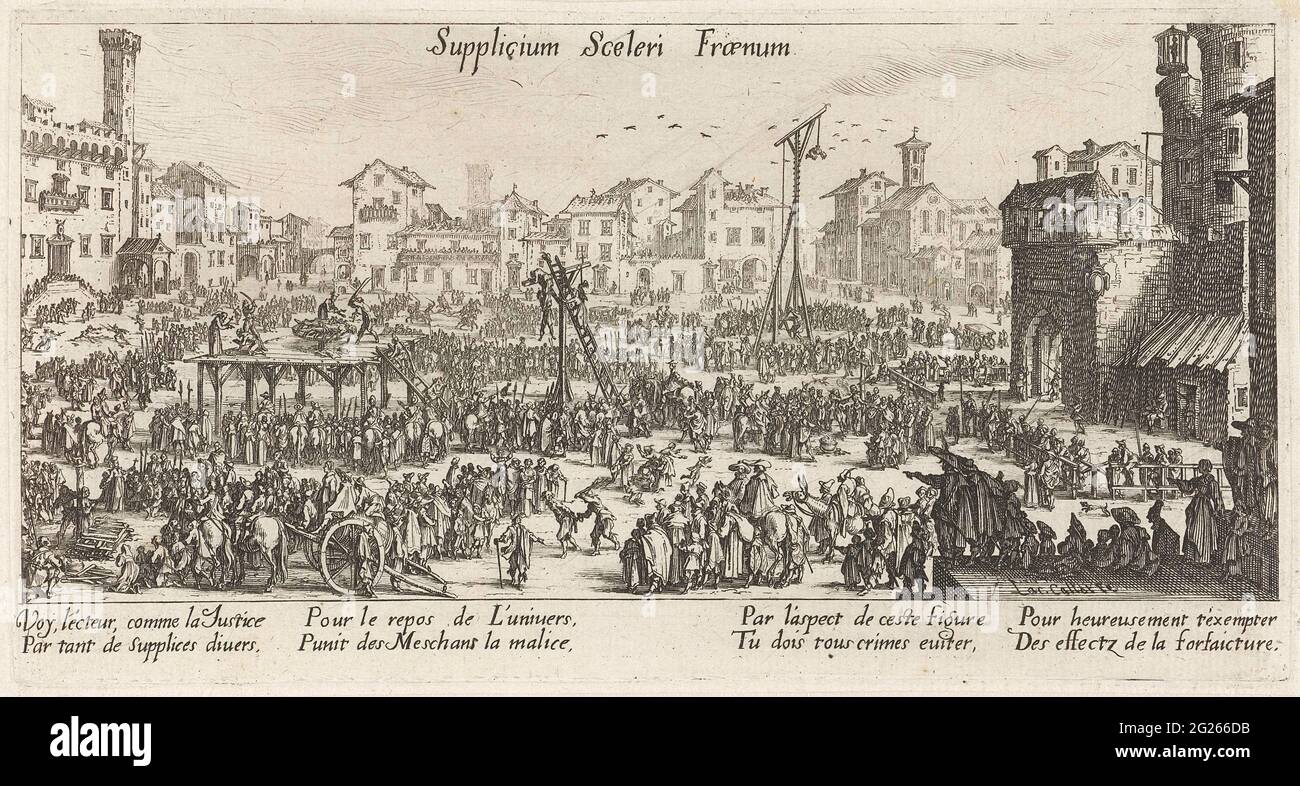 Supplicium Sceleri Frœnum
Voy, lecteur, comme la Justice
Par tant de supplices divers,
Pour le repos de L'univers,
Punit des Meschans la malice,
Par l'aspect de ceste figure
Tu dois tous crimes euiter,
Pour heureusement t'exempter
Des effectz de la forfaicture.
alamy
Image ID: 2G266DB
www.alamy.com